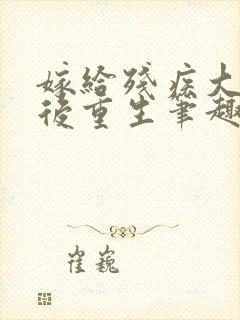 嫁給殘疾大
後重生筆趣
崔巍